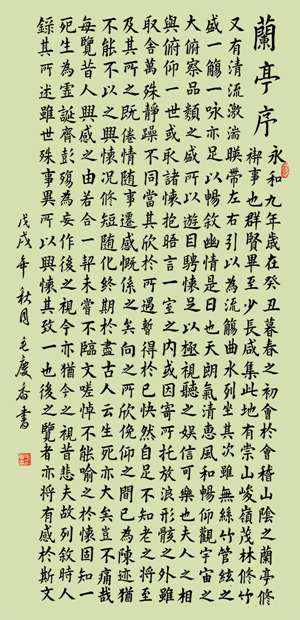 蘭亭序
永和九年歲在癸丑暮春之初會於會稽山陰之蘭亭修
禊事也群賢畢至少長咸集此地有崇山峻嶺茂林修竹
又有清流激湍映帶左右引以為流觴曲水列坐其次雖無絲竹管絃之
盛一觴一咏亦足以暢敘幽情是日也天朗氣清惠風和暢仰觀宇宙之
大俯察品類之盛所以遊目騁懷足以極視聽之娛信可樂也夫人之相
與俯仰一世或取諸懷抱晤言一室之內或因寄所托放浪形骸之外雖
取舍萬殊靜躁不同當其欣於所遇暫得於己快然自足不知老之將至
及其所之既倦情隨事遷感慨係之矣向之所欣俛仰之間已為陳迹猶
不能不以之興懷況修短隨化終期於盡古人云生死亦大矣豈不痛哉
每覽昔人興感之由若合一契未嘗不臨文嗟悼不能喻之於懷固知一
死生為虛誕齊彭殤為妄作後之視今亦猶今之視昔悲夫故列敘時人
錄其所述雖世殊事異所以興懷其致一也後之覽者亦將有感於斯文
戊戌年秋月毛慶香書